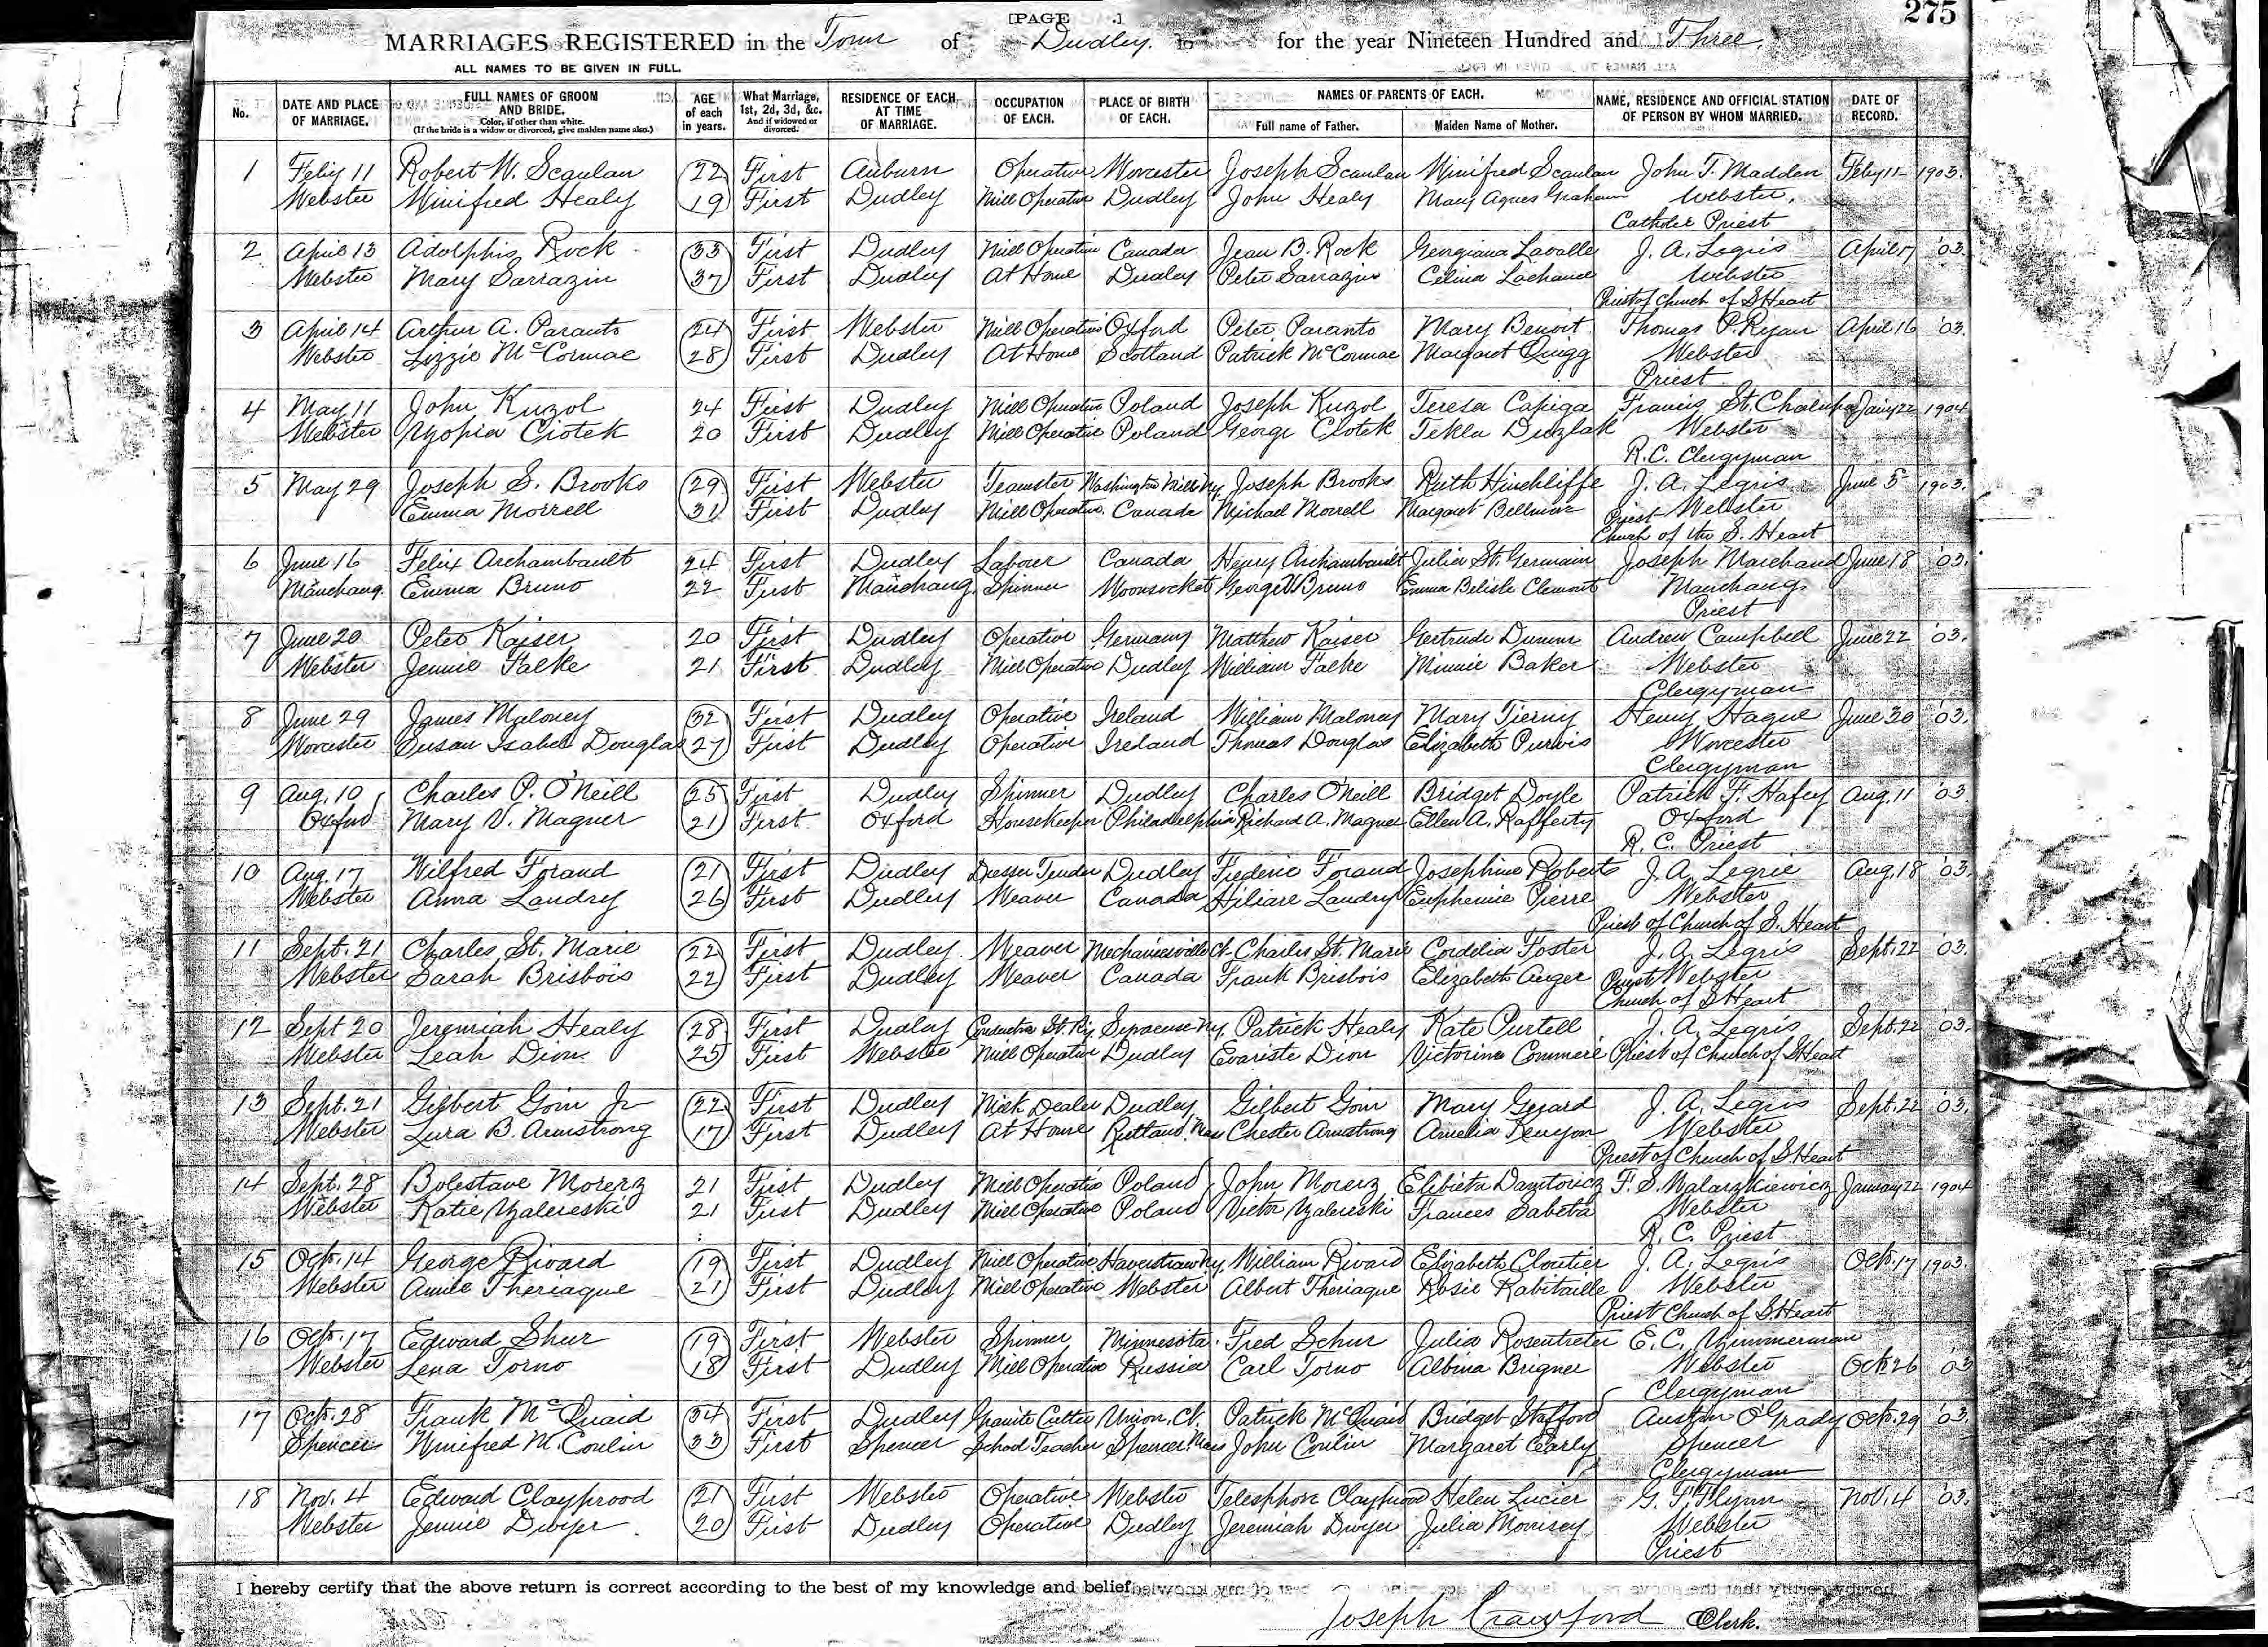 [PAGE ] 275
MARRIAGES REGISTERED in the Town of Dudley. for the year Nineteen Hundred and Three.
ALL NAMES TO BE GIVEN IN FULL.
No. DATE AND PLACE OF MARRIAGE. FULL NAMES OF GROOM AND BRIDE. Color, if other than white. (If the bride is a widow or divorced, give maiden name also.) AGE of each in years. What Marriage, 1st, 2d, 3d, &c. And if widowed or divorced. RESIDENCE OF EACH AT TIME OF MARRIAGE. OCCUPATION OF EACH. PLACE OF BIRTH OF EACH. NAMES OF PARENTS OF EACH. Full name of Father. Maiden Name of Mother. NAME, RESIDENCE AND OFFICIAL STATION OF PERSON BY WHOM MARRIED. DATE OF RECORD.
1 Feby 11 Robert W. Scanlan 22 First Auburn Operative Worcester Joseph Scanlan Winifred Scanlan John T. Madden Feby 11 1903.
Webster Winifred Healy 19 First Dudley Mill Operative Dudley John Healy Mary Agnes Graham Webster,
Catholic Priest
2 April 13 Adolphis Rock 33 First Dudley Mill Operative Canada Jean B. Rock Georgiana Lavalle J. A. Legris April 17 '03.
Webster Mary Sarrazin 37 First Dudley At Home Dudley Peter Sarrazin Celina Lachance Webster
Priest of Church of S Heart
3 April 14 Arthur A. Paranto 24 First Webster Mill Operative Oxford Peter Paranto Mary Benoit Thomas P. Ryan April 16 '03.
Webster Lizzie McCormac 28 First Dudley At Home Scotland Patrick McCormac Margaret Quigg Webster
Priest
4 May 11 John Kuzol 24 First Dudley Mill Operative Poland Joseph Kuzol Teresa Capiga Francis St. Chalupa Jany 22 1904
Webster Zopia Ciotek 20 First Dudley Mill Operative Poland George Ciotek Tekla Duzlak Webster
R.C. Clergyman
5 May 29 Joseph S. Brooks 29 First Webster Teamster Washington Mills Ny. Joseph Brooks Ruth Hinchliffe J. A. Legris June 5 1903.
Emma Morrell 31 First Dudley Mill Operative. Canada Michael Morrell Margaret Priest Webster
Church of the S. Heart
6 June 16 Felix Archambault 24 First Dudley Labour Canada Henry Archambault Julia St. Germain Joseph Marchand June 18 '03.
Manchaug. Emma Bruno 22 First Manchaug. Spinner Woonsocket George Bruno Emma Belisle Clemont Manchaug.
Priest
7 June 20 Peter Kaiser 20 First Dudley Operative Germany Matthew Kaiser Gertrude Dumm Andrew Campbell June 22 '03.
Webster Jennie Falke 21 First Dudley Mill Operative Dudley William Falke Minnie Baker Webster
Clergyman
8 June 29 James Maloney 32 First Dudley Operative Ireland William Maloney Mary Tierny Henry Hague June 30 '03.
Worcester Susan Isabel Douglas 27 First Dudley Operative Ireland Thomas Douglas Elizabeth Purvis Worcester
Clergyman
9 Aug. 10 Charles P. O'Neill 25 First Dudley Spinner Dudley Charles O'Neill Bridget Doyle Patrick F. Hafey Aug. 11 '03.
Oxford Mary V. Magner 21 First Oxford Housekeeper Philadelphia Richard A. Magner Ellen A. Rafferty Oxford
R. C. Priest
10 Aug. 17 Wilfred Forand 21 First Dudley Dresser Tender Dudley Frederic Forand Josephine Roberts J. A. Legris Aug. 18 '03.
Webster Anna Landry 26 First Dudley Weaver Canada Hiliare Landry Euphemie Pierre Webster
Priest of Church of S. Heart
11 Sept. 21 Charles St. Marie 22 First Dudley Weaver Mechanicsville Ct. Charles St. Marie Cordelia Foster J. A. Legris Sept. 22 '03.
Webster Sarah Brisbois 22 First Dudley Weaver Canada Frank Brisbois Elizabeth Auger Priest Webster
Church of S Heart
12 Sept 20 Jeremiah Healy 28 First Dudley Conductor St. Ry. Syracuse Ny. Patrick Healy Kate Purtell J. A. Legris Sept. 22 '03.
Webster Leah Dion 25 First Webster Mill Operative Dudley Evariste Dion Victorine Priest of Church of S Heart
13 Sept. 21 Gilbert Goin Jr 22 First Dudley Milk Dealer Dudley Gilbert Goin Mary Gerard J. A. Legris Sept. 22 '03.
Webster Lura B. Armstrong 17 First Dudley At Home Rutland, Mass Chester Armstrong Amelia Kenyon Webster
Priest of Church of S Heart
14 Sept. 28 Bolestave Morerz 21 First Dudley Mill Operative Poland John Morerz Elibieta F. S. Malarzkiewicz January 22 1904
Webster Katie Zalereski 21 First Dudley Mill Operative Poland Victor Zalereski Frances Sabeta Webster
R. C. Priest
15 Oct. 14 George Rivard 19 First Dudley Mill Operative Haverstraw Ny. William Rivard Elizabeth Cloutier J. A. Legris Oct. 17 1903.
Webster Annie Theriaque 21 First Dudley Mill Operative Webster Albert Theriaque Rosie Rabitaille Webster
Priest Church of S Heart
16 Oct. 17 Edward Shur 19 First Webster Spinner Minnesota. Fred Schur Julia Rosentreter E. C. Zimmerman
Webster Lena Torno 18 First Dudley Mill Operative Russia Carl Torno Albina Brigner Webster Oct 26 '03
Clergyman
17 Oct. 28 Frank McQuaid 34 First Dudley Granite Cutter Union, Ct. Patrick McQuaid Bridget Stafford Austin O'Grady Oct. 29 '03.
Spencer Winifred M. Conlin 33 First Spencer School Teacher Spencer, Mass John Conlin Margaret Early Spencer
Clergyman
18 Nov. 4 Edward Clayprood 21 First Webster Operative Webster Telesphore Clayprood Helen Lucier G. F. Flynn Nov. 4 '03.
Webster Jennie Dwyer 20 First Dudley Operative Dudley Jeremiah Dwyer Julia Morrisey Webster
Priest
I hereby certify that the above return is correct according to the best of my knowledge and belief.
Joseph Crawford Clerk.